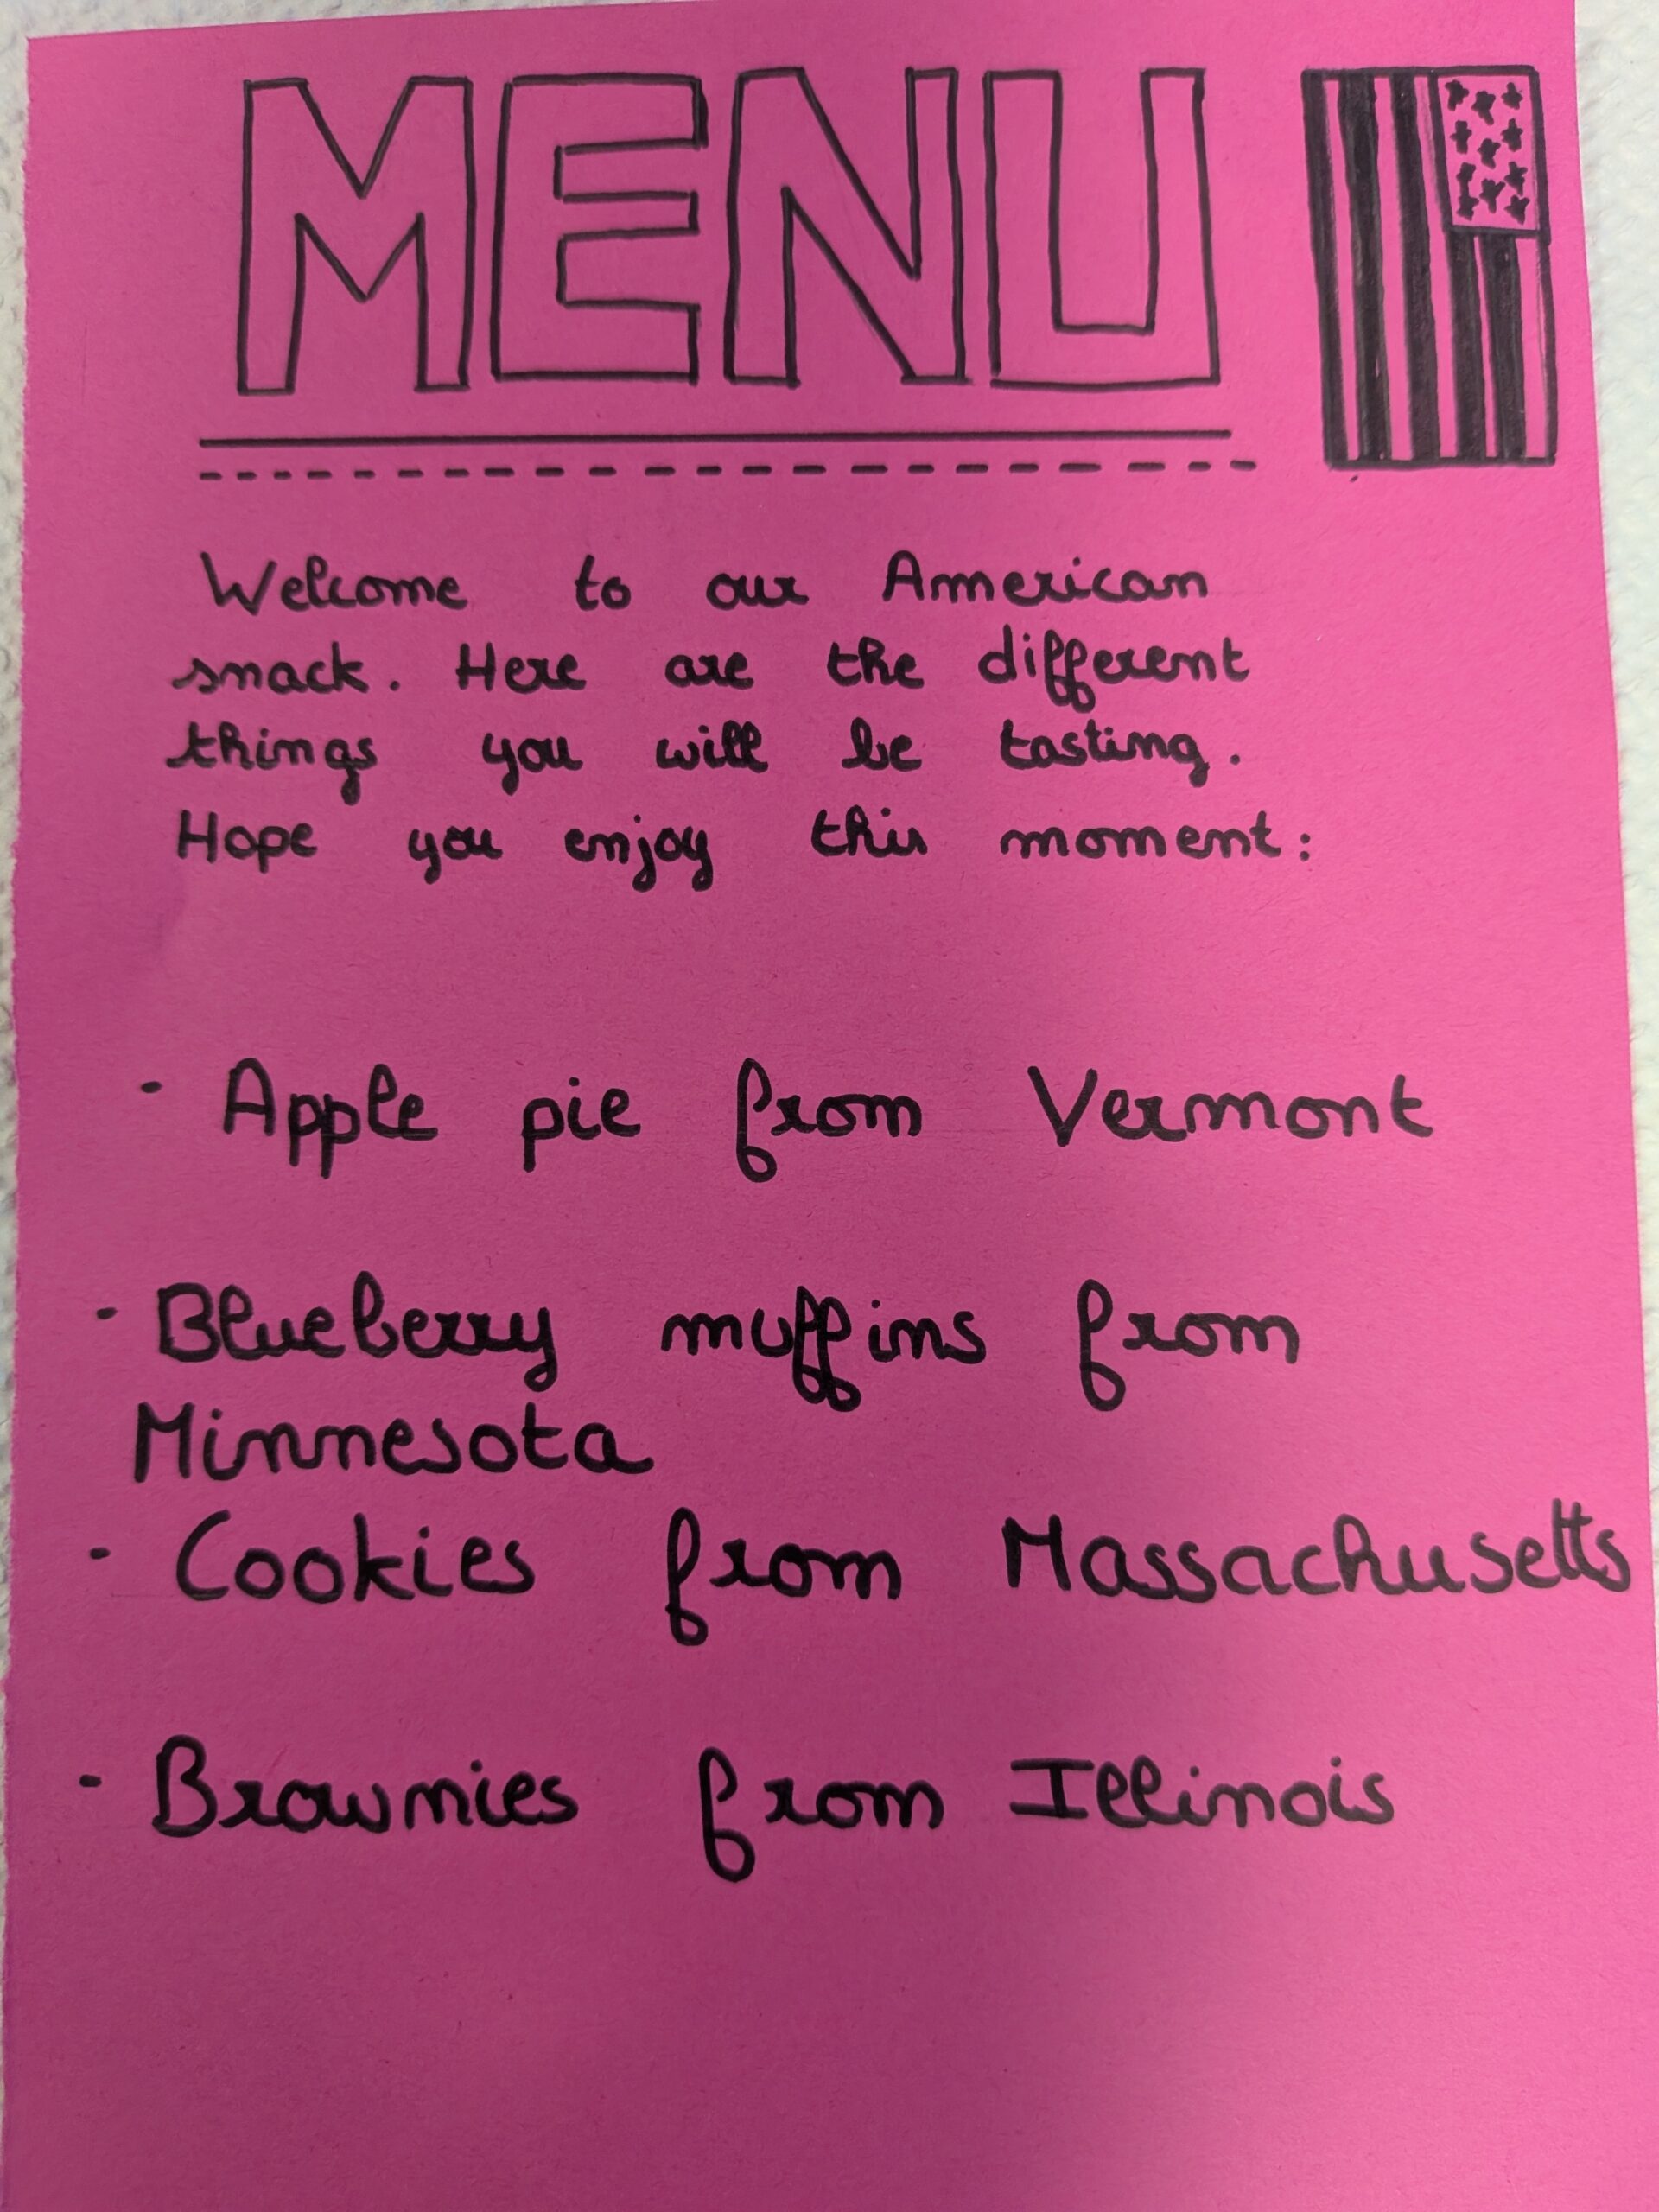 MENU
Welcome to our American
snack. Here are the different
things you will be tasting.
Hope you enjoy this moment:
- Apple pie from Vermont
- Blueberry muffins from
Minnesota
- Cookies from Massachusetts
- Brownies from Illinois